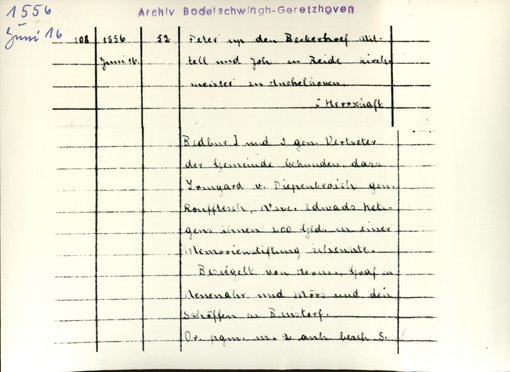 1556
Juni 16
Archiv Bodelschwingh-Geretzhoven
108 1556 52 Peter up den Beckerhoef
Juni 16. tell und Joh. in Beide Kirch-
meister zu
: Herrschaft
Bedbur I und 2 gen. Vertreter
der Gemeinde bekunden, dass
Irmgard v. Diepenbroich gen.
Wwe. Edwads
gens einen 200 Gld. zu einer
Memorienstiftung schenkte.
Besiegelt von Herm., Graf zu
Neuenahr und Mörs und den
Schöffen zu
Or. pgm. m. 2 anh. besch. S.